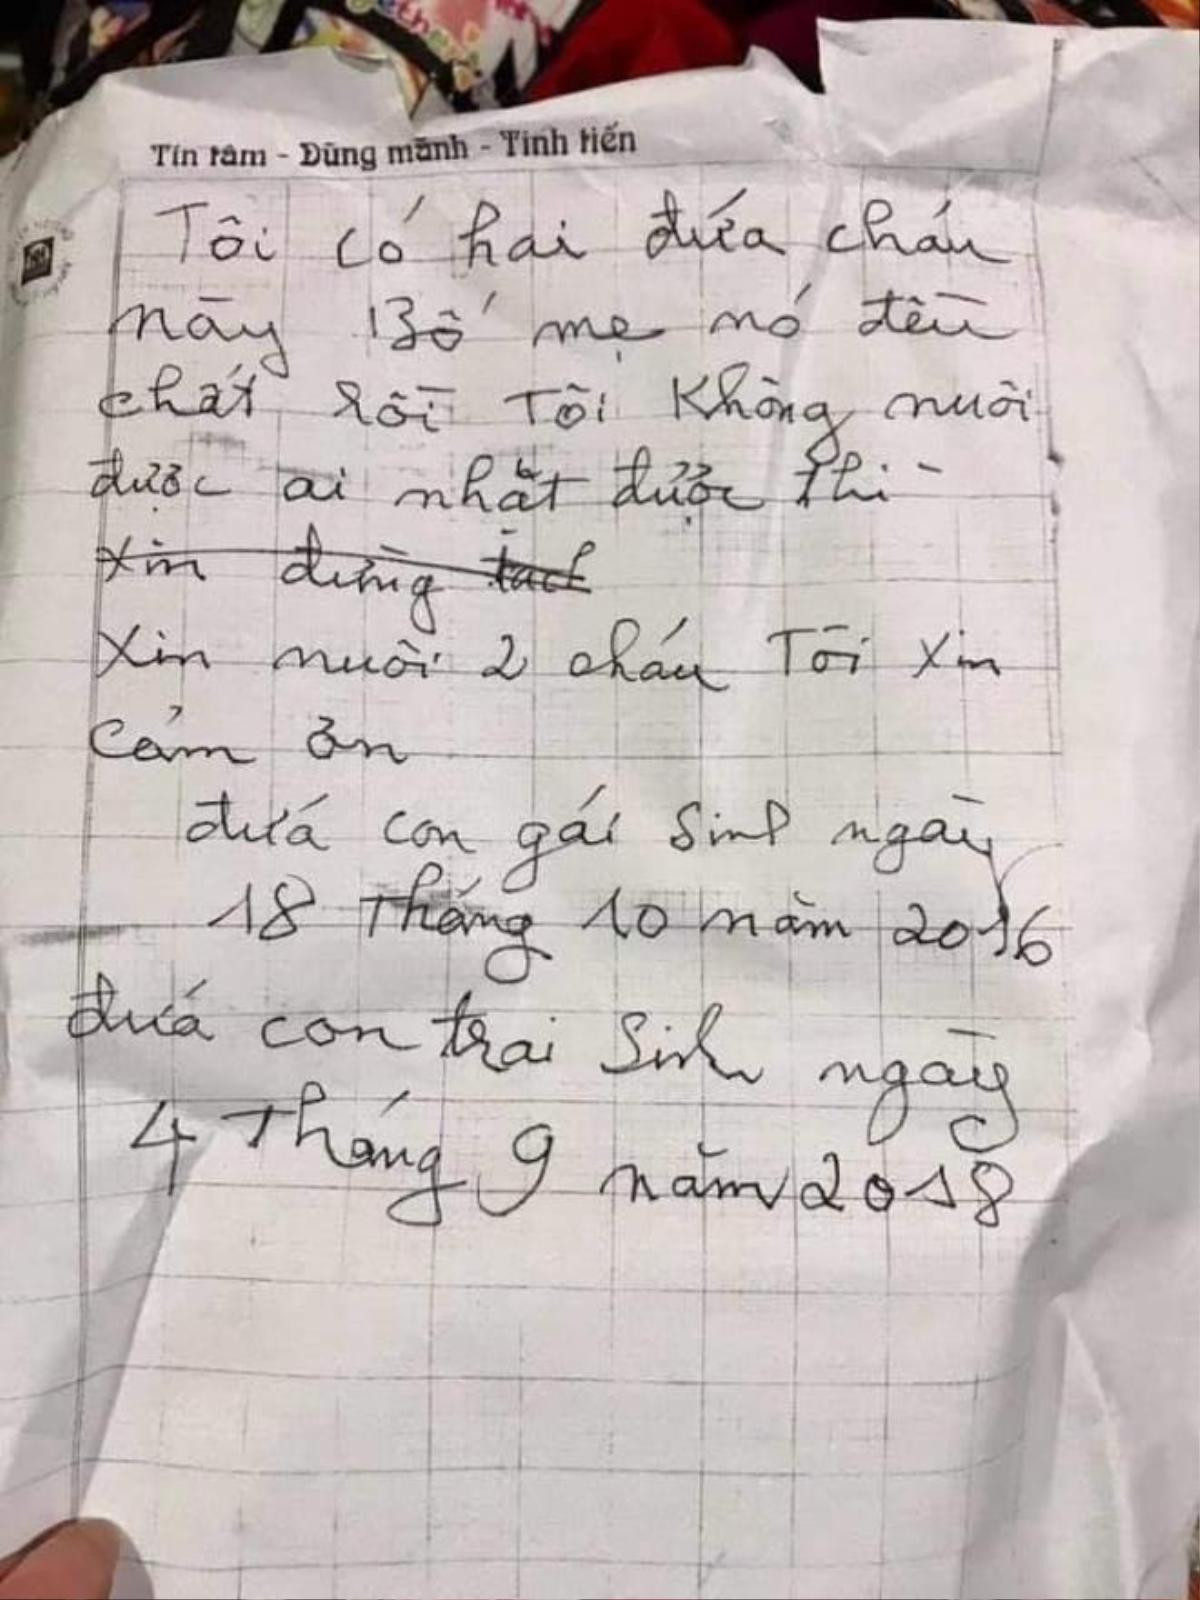 Tín tâm - Dũng mãnh - Tinh tiến
Tôi có hai đứa cháu
này Bố mẹ nó đều
chất rồi Tôi Không nuôi
được ai nhặt được thì
xin đừng tach
Xin nuôi 2 cháu Tôi xin
cảm ơn
đứá con gái sinh ngày
18 Tháng 10 năm 2016
đứá con trai Sinh ngày
4 Tháng 9 năm 2018